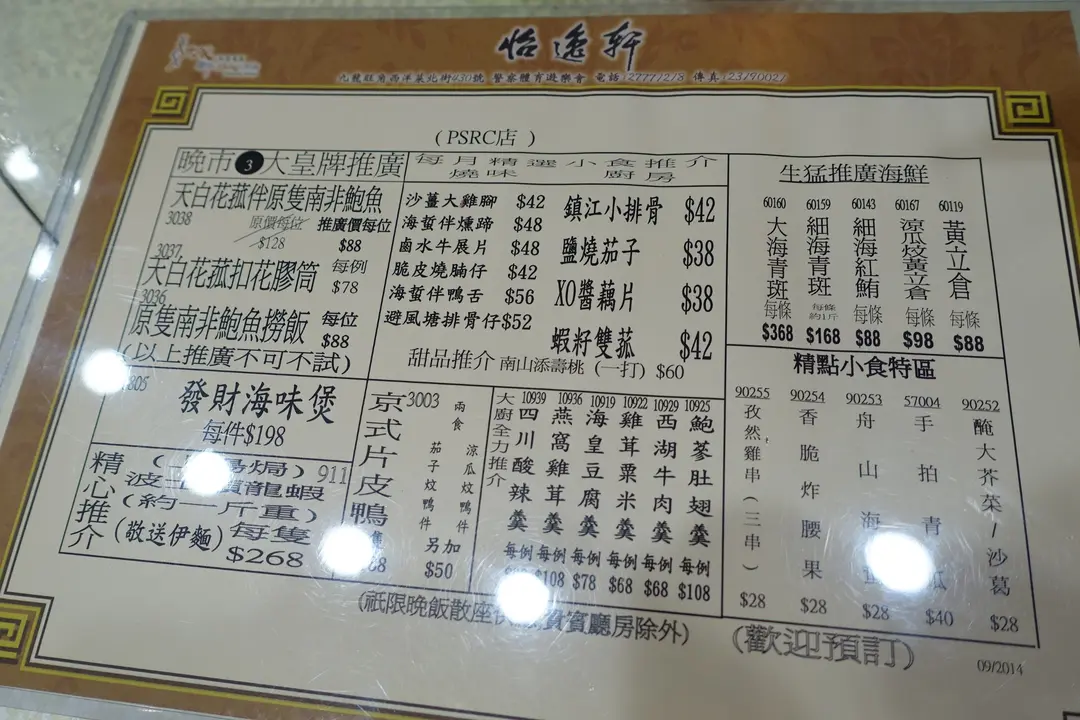 怡逸軒
九龍旺角西洋菜北街430號 警察體育遊樂會 電話:27771218 傳真:23190021
(PSRC店)
晚市3大皇牌推廣
天白花菰伴原隻南非鮑魚
3038 原價每位 推廣價每位
$128 $88
3037
天白花菰扣花膠筒 每例
$78
3036
原隻南非鮑魚撈飯 每位
$88
(以上推廣不可不試)
每月精選小食推介
燒味 廚房
沙薑大雞腳 $42
海蜇伴燻蹄 $48
鹵水牛展片 $48
脆皮燒腩仔 $42
海蜇伴鴨舌 $56
避風塘排骨仔 $52
鎮江小排骨 $42
鹽燒茄子 $38
XO醬藕片 $38
蝦籽雙菰 $42
甜品推介 南山添壽桃 (一打) $60
生猛推廣海鮮
60160 大海青斑 每條 $368
60159 細海青斑 每條約1斤 $168
60143 細海紅鮋 每條 $88
60167 涼瓜炆黃立倉 每條 $98
60119 黃立倉 每條 $88
805
發財海味煲
每件$198
精心推介
焗) 911
波士 龍蝦
(約一斤重)
(敬送伊麵) 每隻
$268
京式片皮鴨
3003
兩食
茄子炆鴨件
涼瓜炆鴨件
另加
$50
大廚全力推介
10939 四川酸辣羹 每例
10936 燕窩雞茸羹 每例 $108
10919 海皇豆腐羹 每例 $78
10922 雞茸粟米羹 每例 $68
10929 西湖牛肉羹 每例 $68
10925 鮑蔘肚翅羹 每例 $108
精點小食特區
90255 孜然雞串(三串) $28
90254 香脆炸腰果 $28
90253 舟山海 $28
57004 手拍青瓜 $40
90252 醃大芥菜/沙葛 $28
(祇限晚飯散座 賓廳房除外)
(歡迎預訂)
09/2014